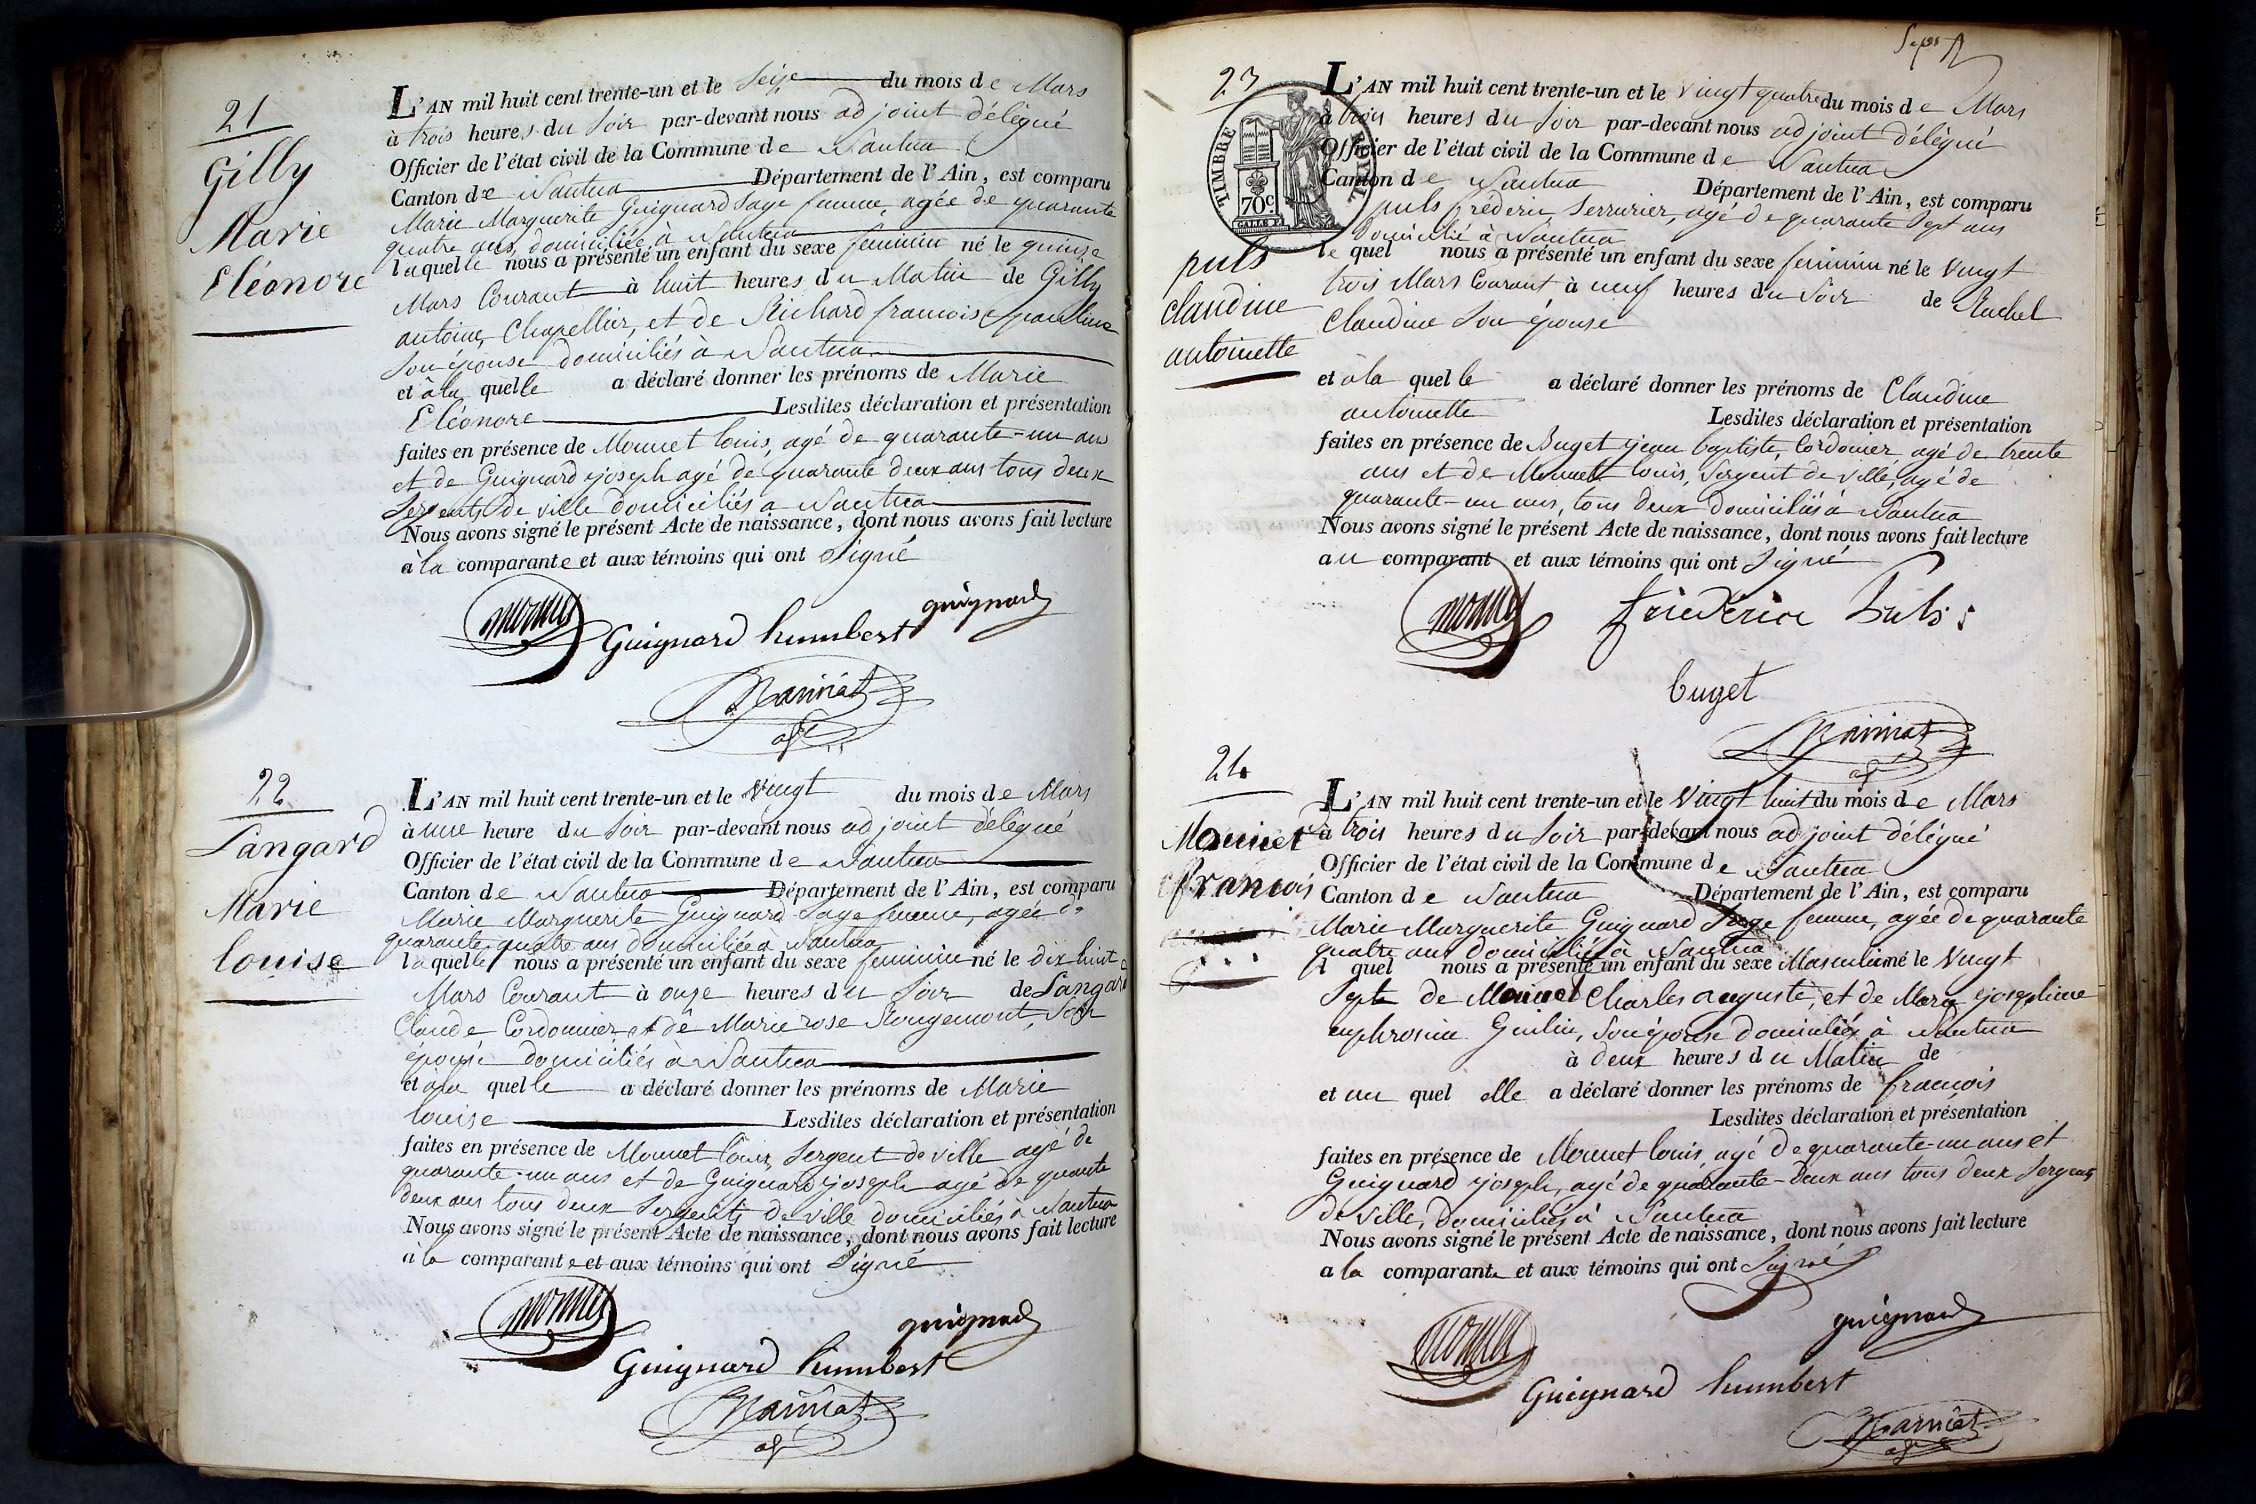 21
Gilly
Marie
Eléonore
L'AN mil huit cent trente-un et le Seize du mois de Mars
à trois heures du Soir par-devant nous adjoint délégué
Officier de l'état civil de la Commune de Nantua
Canton de Nantua Département de l'Ain, est comparu
Marie Marguerite Guignard Sage femme, agée de quarante
quatre ans, domiciliée à Nantua
laquelle nous a présenté un enfant du sexe feminin né le quinze
Mars Courant à huit heures du Matin de Gilly
antoine, Chapellier, et de Richard francoise pauline
Son épouse domiciliés à Nantua
et à la quelle a déclaré donner les prénoms de Marie
Eléonore Lesdites déclaration et présentation
faites en présence de Monnet louis, agé de quarante-un ans
et de Guignard joseph agé de quarante deux ans tous deux
Sergents de ville domiciliés a Nantua
Nous avons signé le présent Acte de naissance, dont nous avons fait lecture
à la comparante et aux témoins qui ont Signé
monnet
Guignard humbert
guignard
22
Langard
Marie
louise
L'AN mil huit cent trente-un et le Vingt du mois de Mars
à une heure du Soir par-devant nous adjoint délégué
Officier de l'état civil de la Commune de Nantua
Canton de Nantua Département de l'Ain, est comparu
Marie Marguerite Guignard Sage femme, agée de
quarante quatre ans domiciliée à Nantua
laquelle nous a présenté un enfant du sexe feminin né le dix huit
Mars Courant à onze heures du Soir de Langard
Claude Cordonnier et de Marie rose Rougemont, Son
épouse domiciliés à Nantua
et à la quelle a déclaré donner les prénoms de Marie
louise Lesdites déclaration et présentation
faites en présence de Monnet louis, Sergent de ville agé de
quarante-un ans et de Guignard joseph agé de quarante
deux ans tous deux Sergents de ville domiciliés à Nantua
Nous avons signé le présent Acte de naissance, dont nous avons fait lecture
a la comparante et aux témoins qui ont Signé
monnet
guignard
Guignard humbert
23
TIMBRE ROYAL
70c
puls
claudine
antoinette
L'AN mil huit cent trente-un et le Vingt quatre du mois de Mars
à trois heures du Soir par-devant nous adjoint délégué
Officier de l'état civil de la Commune de Nantua
Canton de Nantua Département de l'Ain, est comparu
puls fréderic, Serrurier, agé de quarante Sept ans
Domicilié à Nantua
le quel nous a présenté un enfant du sexe feminin né le Vingt
trois Mars Courant à neuf heures du Soir de Ruchel
Claudine Son épouse
et à la quelle a déclaré donner les prénoms de Claudine
antoinette Lesdites déclaration et présentation
faites en présence de Buget jean baptiste, Cordonier, agé de trente
ans et de Monnet louis, Sergent de ville, agé de
quarante-un ans, tous deux domiciliés à Nantua
Nous avons signé le présent Acte de naissance, dont nous avons fait lecture
au comparant et aux témoins qui ont Signé
monnet
friederice Puls
buget
24
Monnet
francois
L'AN mil huit cent trente-un et le Vingt huit du mois de Mars
à trois heures du Soir par-devant nous adjoint délégué
Officier de l'état civil de la Commune de Nantua
Canton de Nantua Département de l'Ain, est comparu
Marie Marguerite Guignard Sage femme, agée de quarante
quatre ans domiciliée à Nantua
quel nous a présenté un enfant du sexe Masculin né le Vingt
Sept de Monnet Charles auguste, et de Marie josephine
euphrosine Guilin, Son épouse domiciliés à Nantua
à deux heures du Matin de
et au quel elle a déclaré donner les prénoms de francois
Lesdites déclaration et présentation
faites en présence de Monnet louis, agé de quarante-un ans et
Guignard joseph, agé de quarante-Deux ans tous deux Sergents
de Ville, domiciliés à Nantua
Nous avons signé le présent Acte de naissance, dont nous avons fait lecture
a la comparante et aux témoins qui ont Signé
monnet
guignard
Guignard humbert